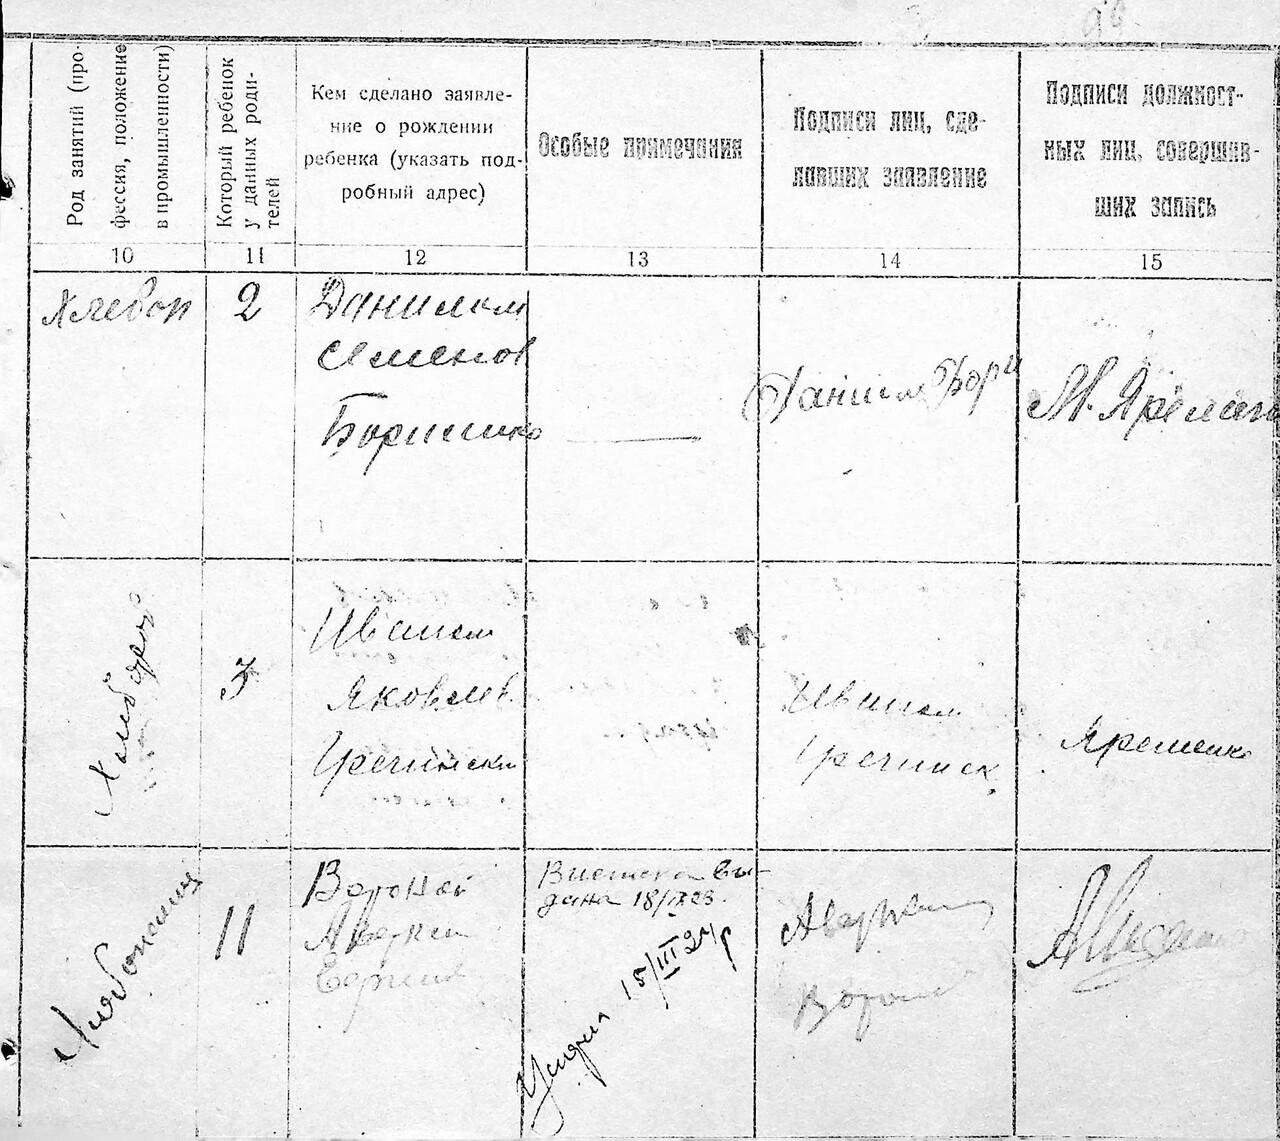 96.
Род занятий (про-
фессия, положение
в промышленности)
Который ребенок
у данных роди-
телей
Кем сделано заявле-
ние о рождении
ребенка (указать под-
робный адрес)
Особые примечания
Подписи лиц, сде-
лавших заявление
Подписи должност-
ных лиц, совершив-
ших запись
10
11
12
13
14
15
Хлебор
2
Данилом
Семенов
Борисенко
Данило Бори
М. Яремен
Хлебороб
3
Иваном
Яковлев
Гречински
Иваном
Гречинск
Яременко
11
Вороной
Аверкий
Выписка вы-
дана 18/IX 23.
15/III 24 р
Аверкий
Вороной